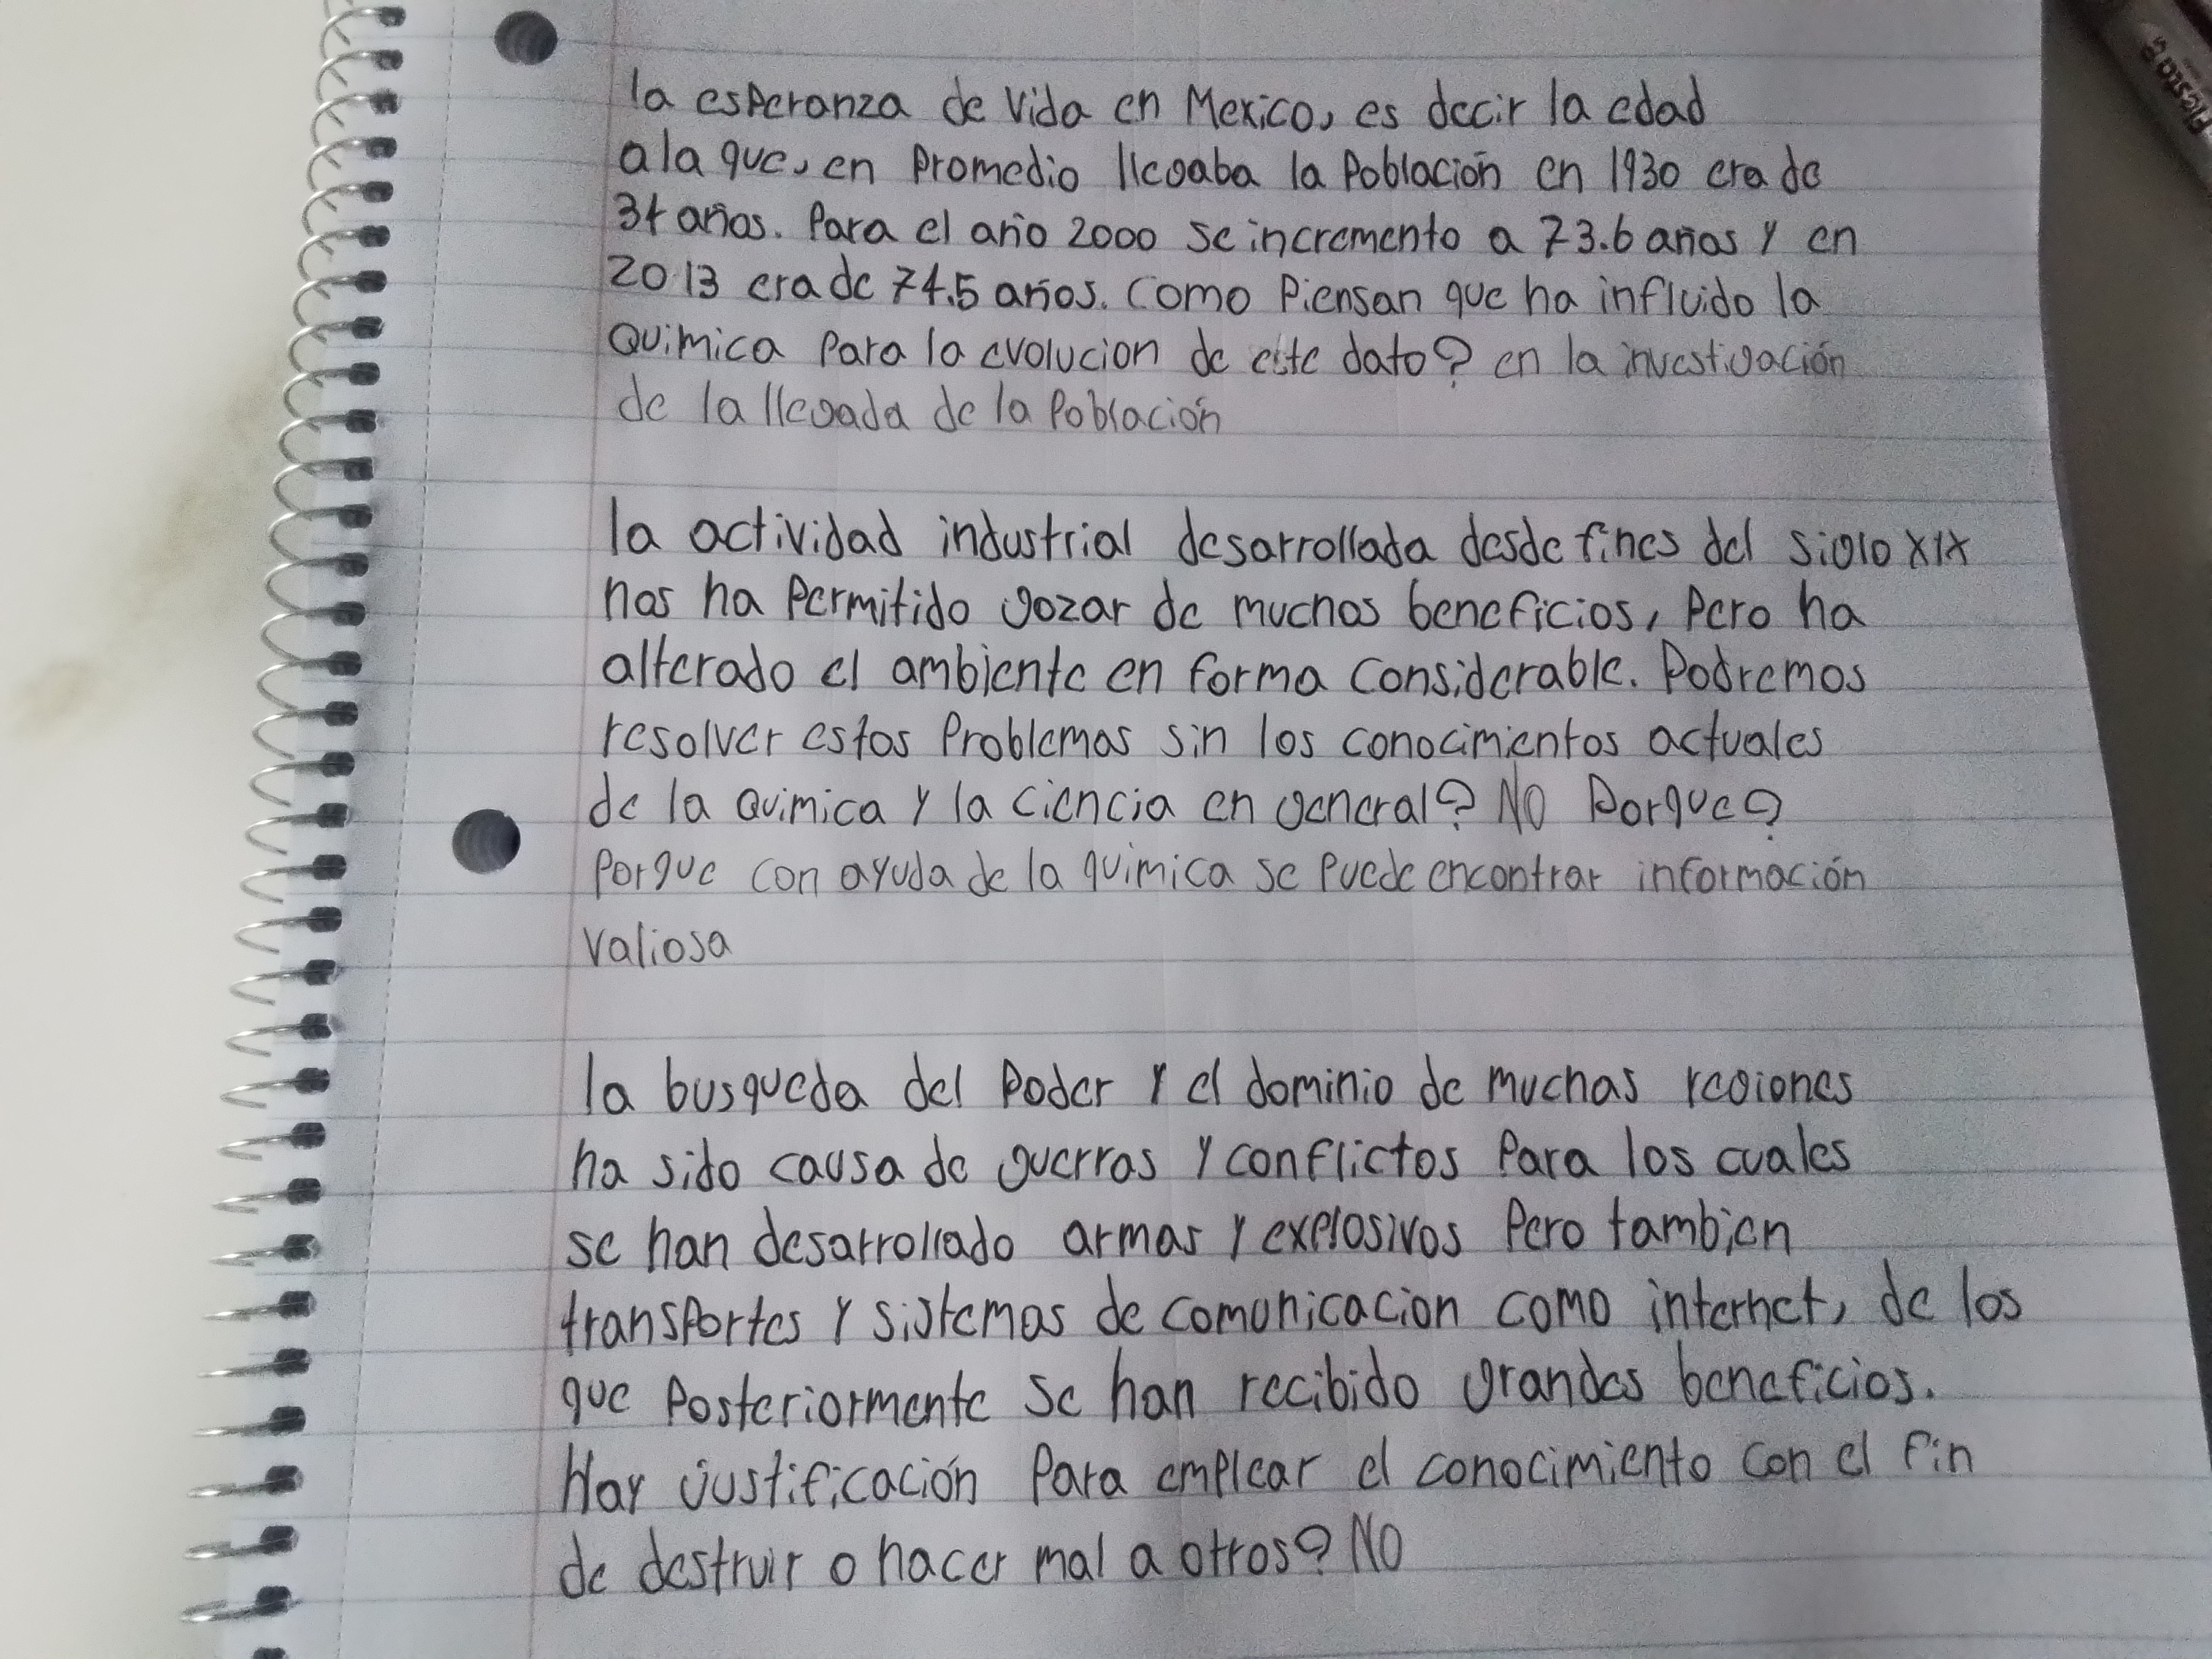 la esperanza de vida en Mexico, es decir la edad
a la que, en Promedio llegaba la Población en 1930 era de
34 años. Para el año 2000 se incremento a 73.6 años y en
2013 era de 74.5 años. Como Piensan que ha influido la
Quimica Para la evolucion de este dato? en la investigación
de la llegada de la Población
la actividad industrial desarrollada desde fines del siglo XIX
nos ha Permitido gozar de muchos beneficios, Pero ha
alterado el ambiente en forma considerable. Podremos
resolver estos Problemas sin los conocimientos actuales
de la Quimica y la ciencia en general? NO Porque?
Porque con ayuda de la quimica se Puede encontrar información
valiosa
la busqueda del Poder y el dominio de muchas regiones
ha sido causa de guerras y conflictos Para los cuales
se han desarrollado armas y explosivos Pero tambien
transportes y sistemas de comunicacion como internet, de los
que Posteriormente se han recibido grandes beneficios.
Hay justificación Para emplear el conocimiento con el fin
de destruir o hacer mal a otros? NO